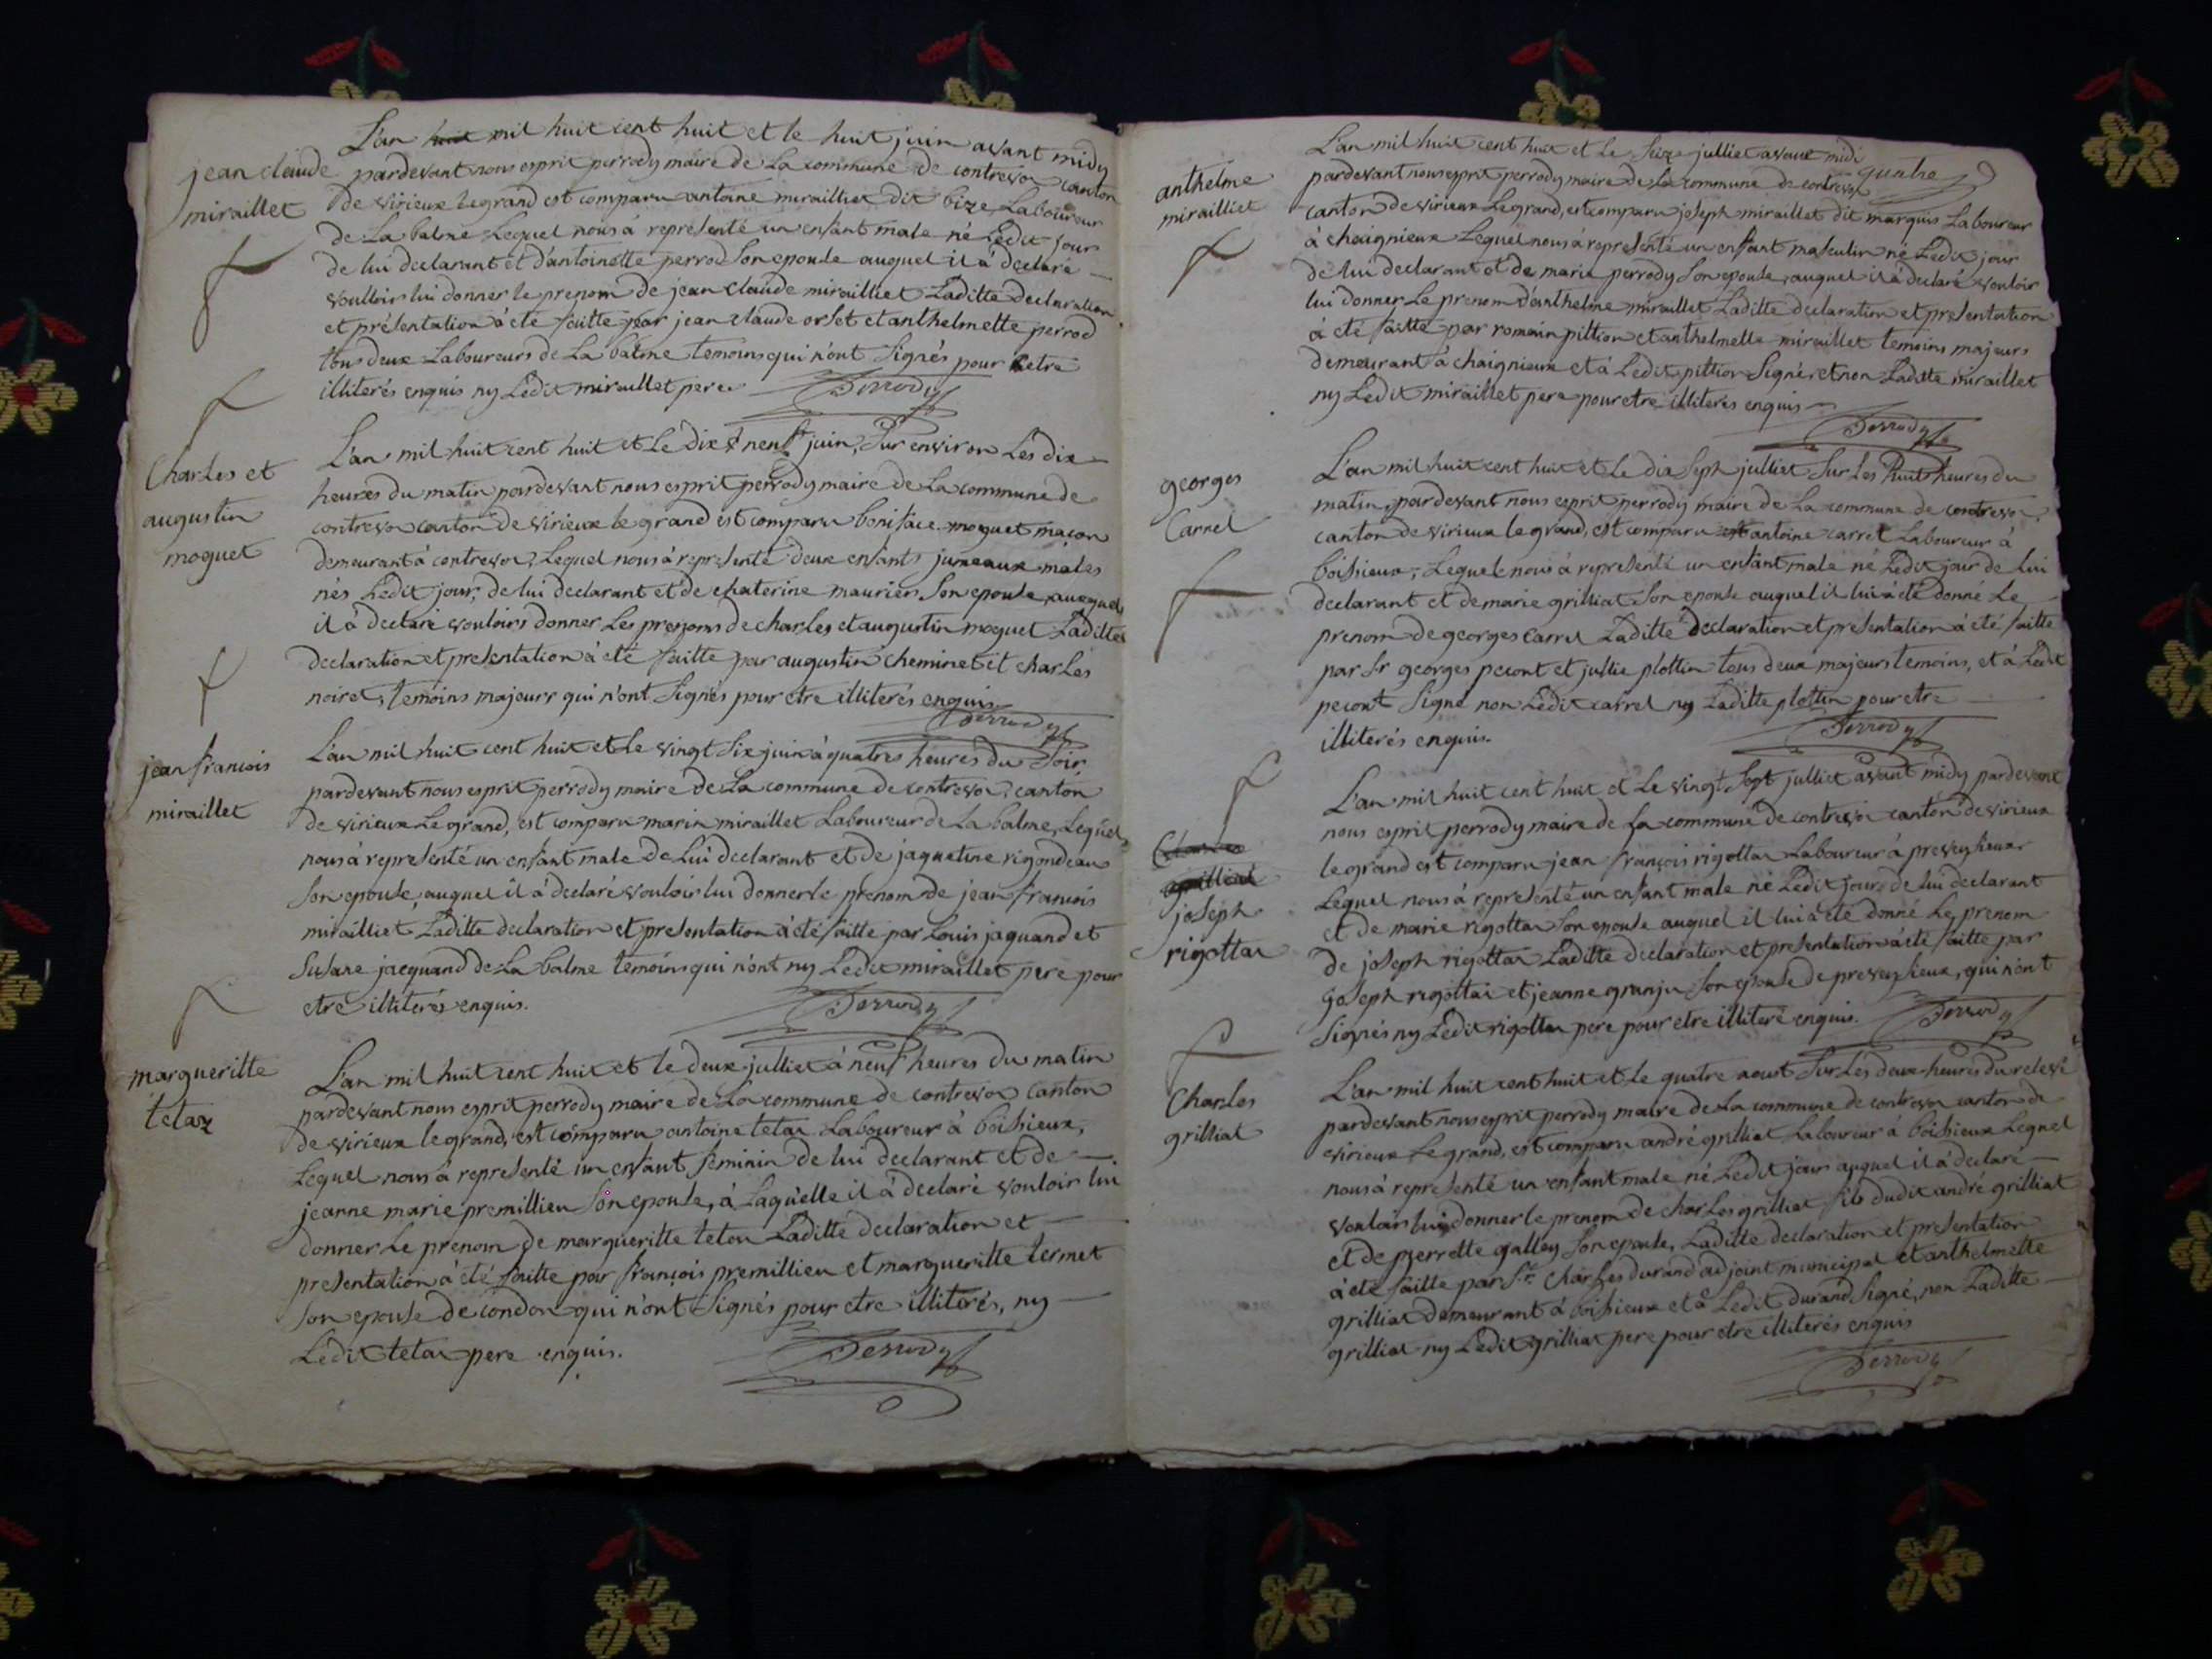 L'an mil huit cent huit et le huit juin avant midy
jean claude
miraillet
pardevant nous esprit perrody maire de La commune de contrevoz canton
de virieux le grand est comparu antoine mirailliet dit bize, Laboureur
de La balme Lequel nous à représenté un enfant male né Ledit jour
de lui declarant et d'antoinette perrod Son epouse auquel il à déclaré
voulloir lui donner le prenom de jean claude mirailliet Laditte declaration
et présentation à été faitte par jean claude orset et anthelmette perrod
tous deux Laboureurs de La balme temoins qui n'ont Signés pour etre
illiterés enquis ny Ledit miraillet pere
Perrody
Charles et
augustin
moguet
L'an mil huit cent huit et Le dix neuf juin, Sur environ Les dix
heures du matin pardevant nous esprit perrody maire de La commune de
contrevoz canton de virieux le grand est comparu boniface moguet maçon
demeurant à contrevoz, Lequel nous à représenté deux enfants jumeaux males
nés Ledit jour, de lui declarant et de chaterine maurier Son epouse auxquels
il à declaré vouloirs donner Les prenoms de charles et augustin moguet Laditte
declaration et presentation à été faitte par augustin cheminet et charles
noiret, temoins majeurs qui n'ont Signés pour etre illiterés enquis
Perrody
jean francois
miraillet
L'an mil huit cent huit et Le vingt Six juin à quatres heures du Soir,
pardevant nous esprit perrody maire de La commune de contrevoz, canton
de virieux Le grand, est comparu marin miraillet Laboureur de La balme, Lequel
nous à representé un enfant male de Lui declarant et de jaqueline rigondeau
Son epouse, auquel il à declaré vouloir lui donner le prenom de jean francois
mirailliet Laditte declaration et presentation à été faitte par Louis jaquand et
Susane jacquand de La balme temoins qui n'ont ny Ledit miraillet pere pour
etre illiterés enquis.
Perrody
margueritte
tetaz
L'an mil huit cent huit et le deux julliet à neuf heures du matin
pardevant nous esprit perrody maire de La commune de contrevoz canton
de virieux le grand, est comparu antoine tetaz Laboureur à boissieux,
Lequel nous à representé un enfant feminin de lui declarant et de
jeanne marie premillieu Son epouse, à Laquelle il à declaré vouloir lui
donner Le prenom de margueritte tetaz Laditte declaration et
presentation à été faitte par françois premillieu et margueritte termet
Son epouse de condon qui n'ont Signés pour etre illiterés, ny
Ledit tetaz pere enquis.
Perrody
quatre
anthelme
mirailliet
L'an mil huit cent huit et Le Seize julliet avant midi
pardevant nous esprit perrody maire de La commune de contrevoz
canton de virieux Le grand, est comparu joseph miraillet dit marquis Laboureur
à chaignieux Lequel nous à représenté un enfant masculin né Ledit jour
de lui declarant et de marie perrody Son epouse, auquel il à declaré vouloir
lui donner Le prenom d'anthelme miraillet Laditte declaration et presentation
à été faitte par romain pittion et anthelmette miraillet temoins majeurs
demeurant à chaignieux et à Ledit pittion Signé, et non Laditte miraillet
ny Ledit miraillet pere pour etre illiterés enquis
Perrody
georges
Carrel
L'an mil huit cent huit et Le dix Sept julliet Sur Les huit heures du
matin, pardevant nous esprit perrody maire de La commune de contrevoz
canton de virieux le grand, est comparu antoine carrel Laboureur à
boissieux, Lequel nous à representé un enfant male né Ledit jour de Lui
declarant et de marie grilliat Son epouse auquel il lui à été donné Le
prenom de georges Carrel Laditte declaration et presentation à été faitte
par Sr georges pecont et jullie plottin tous deux majeurs temoins, et à Ledit
pecont Signé non Ledit carrel ny Laditte plottin pour etre
illiterés enquis.
Perrody
joseph
rigottaz
L'an mil huit cent huit et Le vingt Sept julliet avant midy pardevant
nous esprit perrody maire de La commune de contrevoz canton de virieux
le grand est comparu jean françois rigottaz Laboureur à preveyssieux
Lequel nous à representé un enfant male né Ledit jour de lui declarant
et de marie rigottaz Son epouse auquel il lui à été donné Le prenom
de joseph rigottaz Laditte declaration et presentation à été faitte par
joseph rigottaz et jeanne granju Son epouse de preveyssieux, qui n'ont
Signés ny Ledit rigottaz pere pour etre illiteré enquis.
Perrody
Charles
grilliat
L'an mil huit cent huit et Le quatre aoust Sur Les deux heures du relevé
pardevant nous esprit perrody maire de La commune de contrevoz canton de
virieux Le grand, est comparu andré grilliat Laboureur à boissieux Lequel
nous à représenté un enfant male né Ledit jour auquel il à declaré
vouloir lui donner le prenom de charles grilliat fils dudit andré grilliat
et de pierrette galley Son epouse, Laditte declaration et presentation
à été faitte par Sr. Charles durand adjoint municipal et anthelmette
grilliat demeurant à boissieux et à Ledit durand Signé, non Laditte
grilliat ny Ledit grilliat pere pour etre illiterés enquis
Perrody